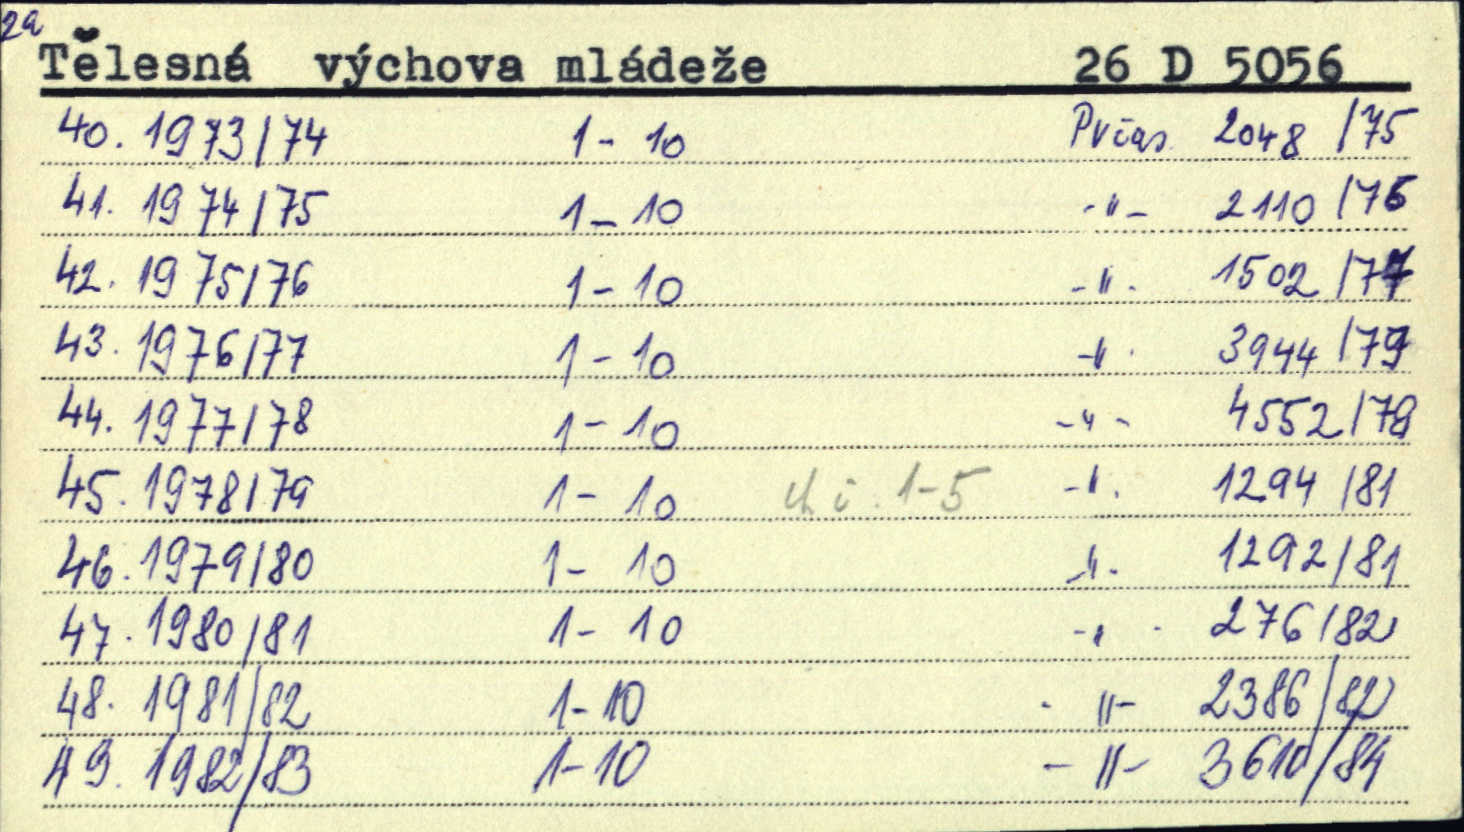 2a
Tělesná výchova mládeže 26 D 5056
40. 1973/74 1- 10 Přčas 2048 /75
41. 1974/75 1-10 -"- 2110 /76
42. 1975/76 1-10 -"- 1502 /77
43. 1976/77 1-10 -"- 3944 /79
44. 1977/78 1-10 -"- 4552/79
45. 1978/79 1-10 ch č. 1-5 -". 1294 /81
46. 1979/80 1- 10 -"- 1292/81
47. 1980/81 1- 10 -"- 276/82
48. 1981/82 1-10 -"- 2386/82
49. 1982/83 1-10 -"- 3610/84